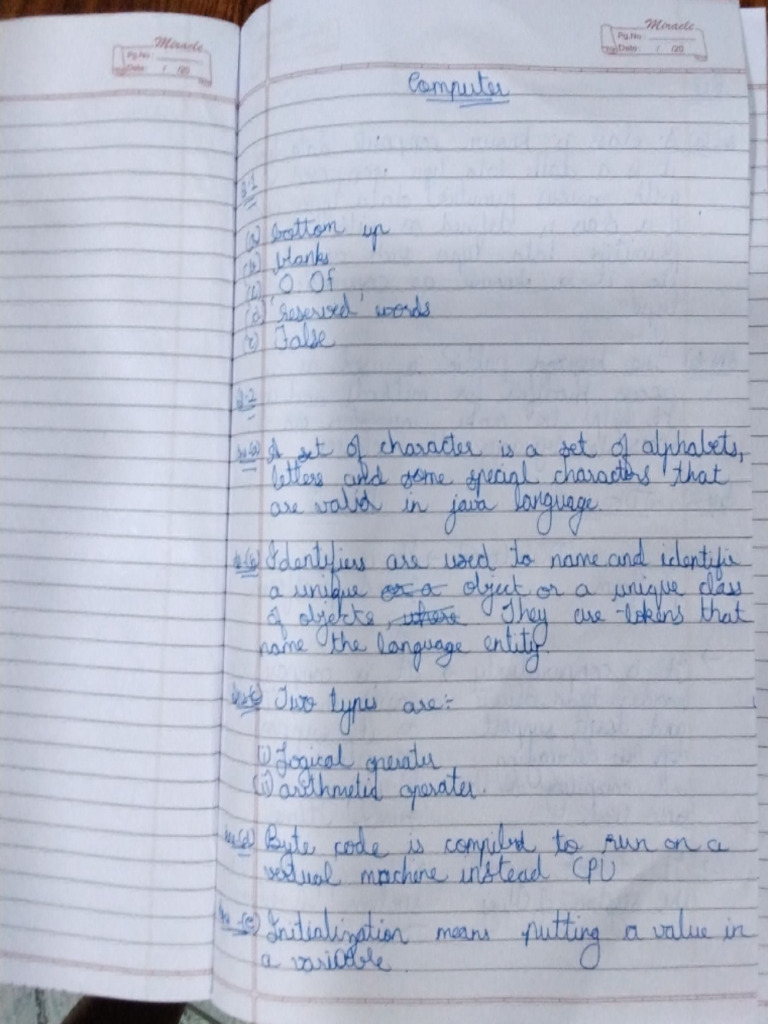 Miracle
Pg.No :
Date : / /20
Miracle
Pg.No :
Date : / /20
Computer
Q.1
(a) bottom up
(b) blanks
(c) 0.0f
(d) 'Reserved' words
(e) False
Q.2
Ans(a) A set of character is a set of alphabets,
letters and some special characters that
are valid in java language.
Identifiers are used to name and identifie
a unique or a object or a unique class
of objects, where They are tokens that
name the language entity.
Ans(c) Two types are:-
(i) Logical operater
(ii) arithmetid operater.
Ans(d) Byte code is compiled to run on a
vertual machine instead CPU
Ans(e) Initialization means putting a value in
a variable.